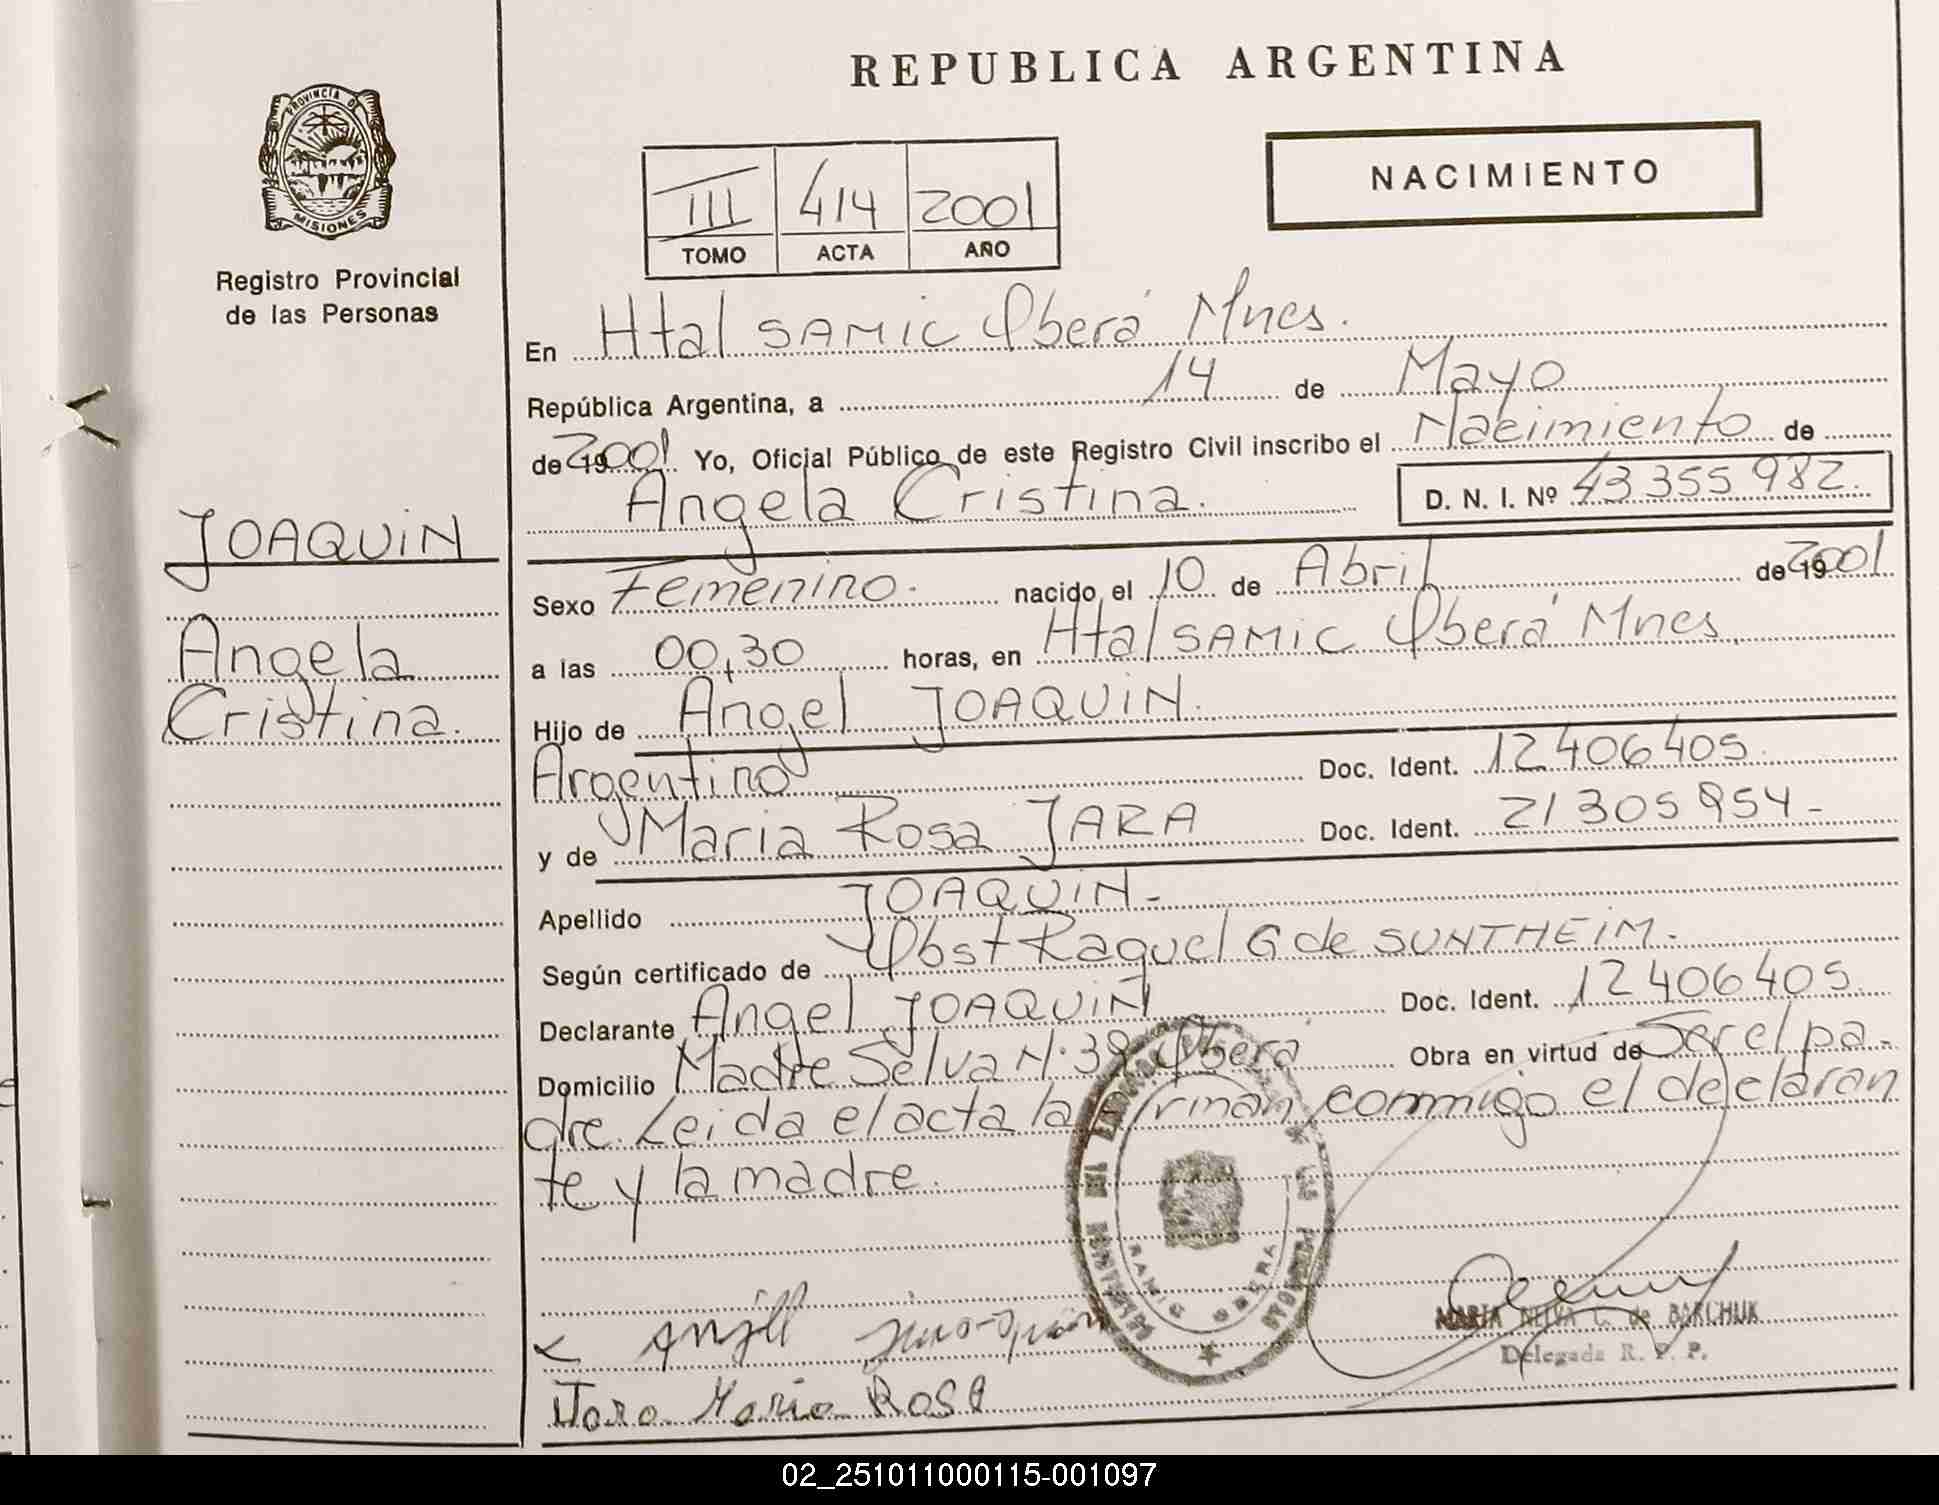 REPUBLICA ARGENTINA
PROVINCIA DE
MISIONES
Registro Provincial
de las Personas
III 414 2001
TOMO ACTA AÑO
NACIMIENTO
En Htal SAMIC Oberá Mnes.
República Argentina, a 14 de Mayo
de 19 2001 Yo, Oficial Público de este Registro Civil inscribo el Nacimiento de
Angela Cristina. D. N. I. Nº 43355982.
JOAQUIN
Angela
Cristina.
Sexo Femenino. nacido el 10 de Abril de 19 2001
a las 00,30 horas, en Htal SAMIC Oberá Mnes
Hijo de Angel JOAQUIN.
Argentino Doc. Ident. 12406405.
y de Maria Rosa JARA Doc. Ident. 21305954-
Apellido JOAQUIN-
Según certificado de Obst Raquel G de SUNTHEIM.
Declarante Angel JOAQUIN Doc. Ident. 12406405.
Domicilio Madre Selva N· 39 Oberá Obra en virtud de Ser el pa-
dre. Leida el acta la firman conmigo el declaran
te y la madre.
OBERA
MARIA NELVA C. de BARCHUK
Delegada R. P. P.
Jara Maria Rosa
02_251011000115-001097